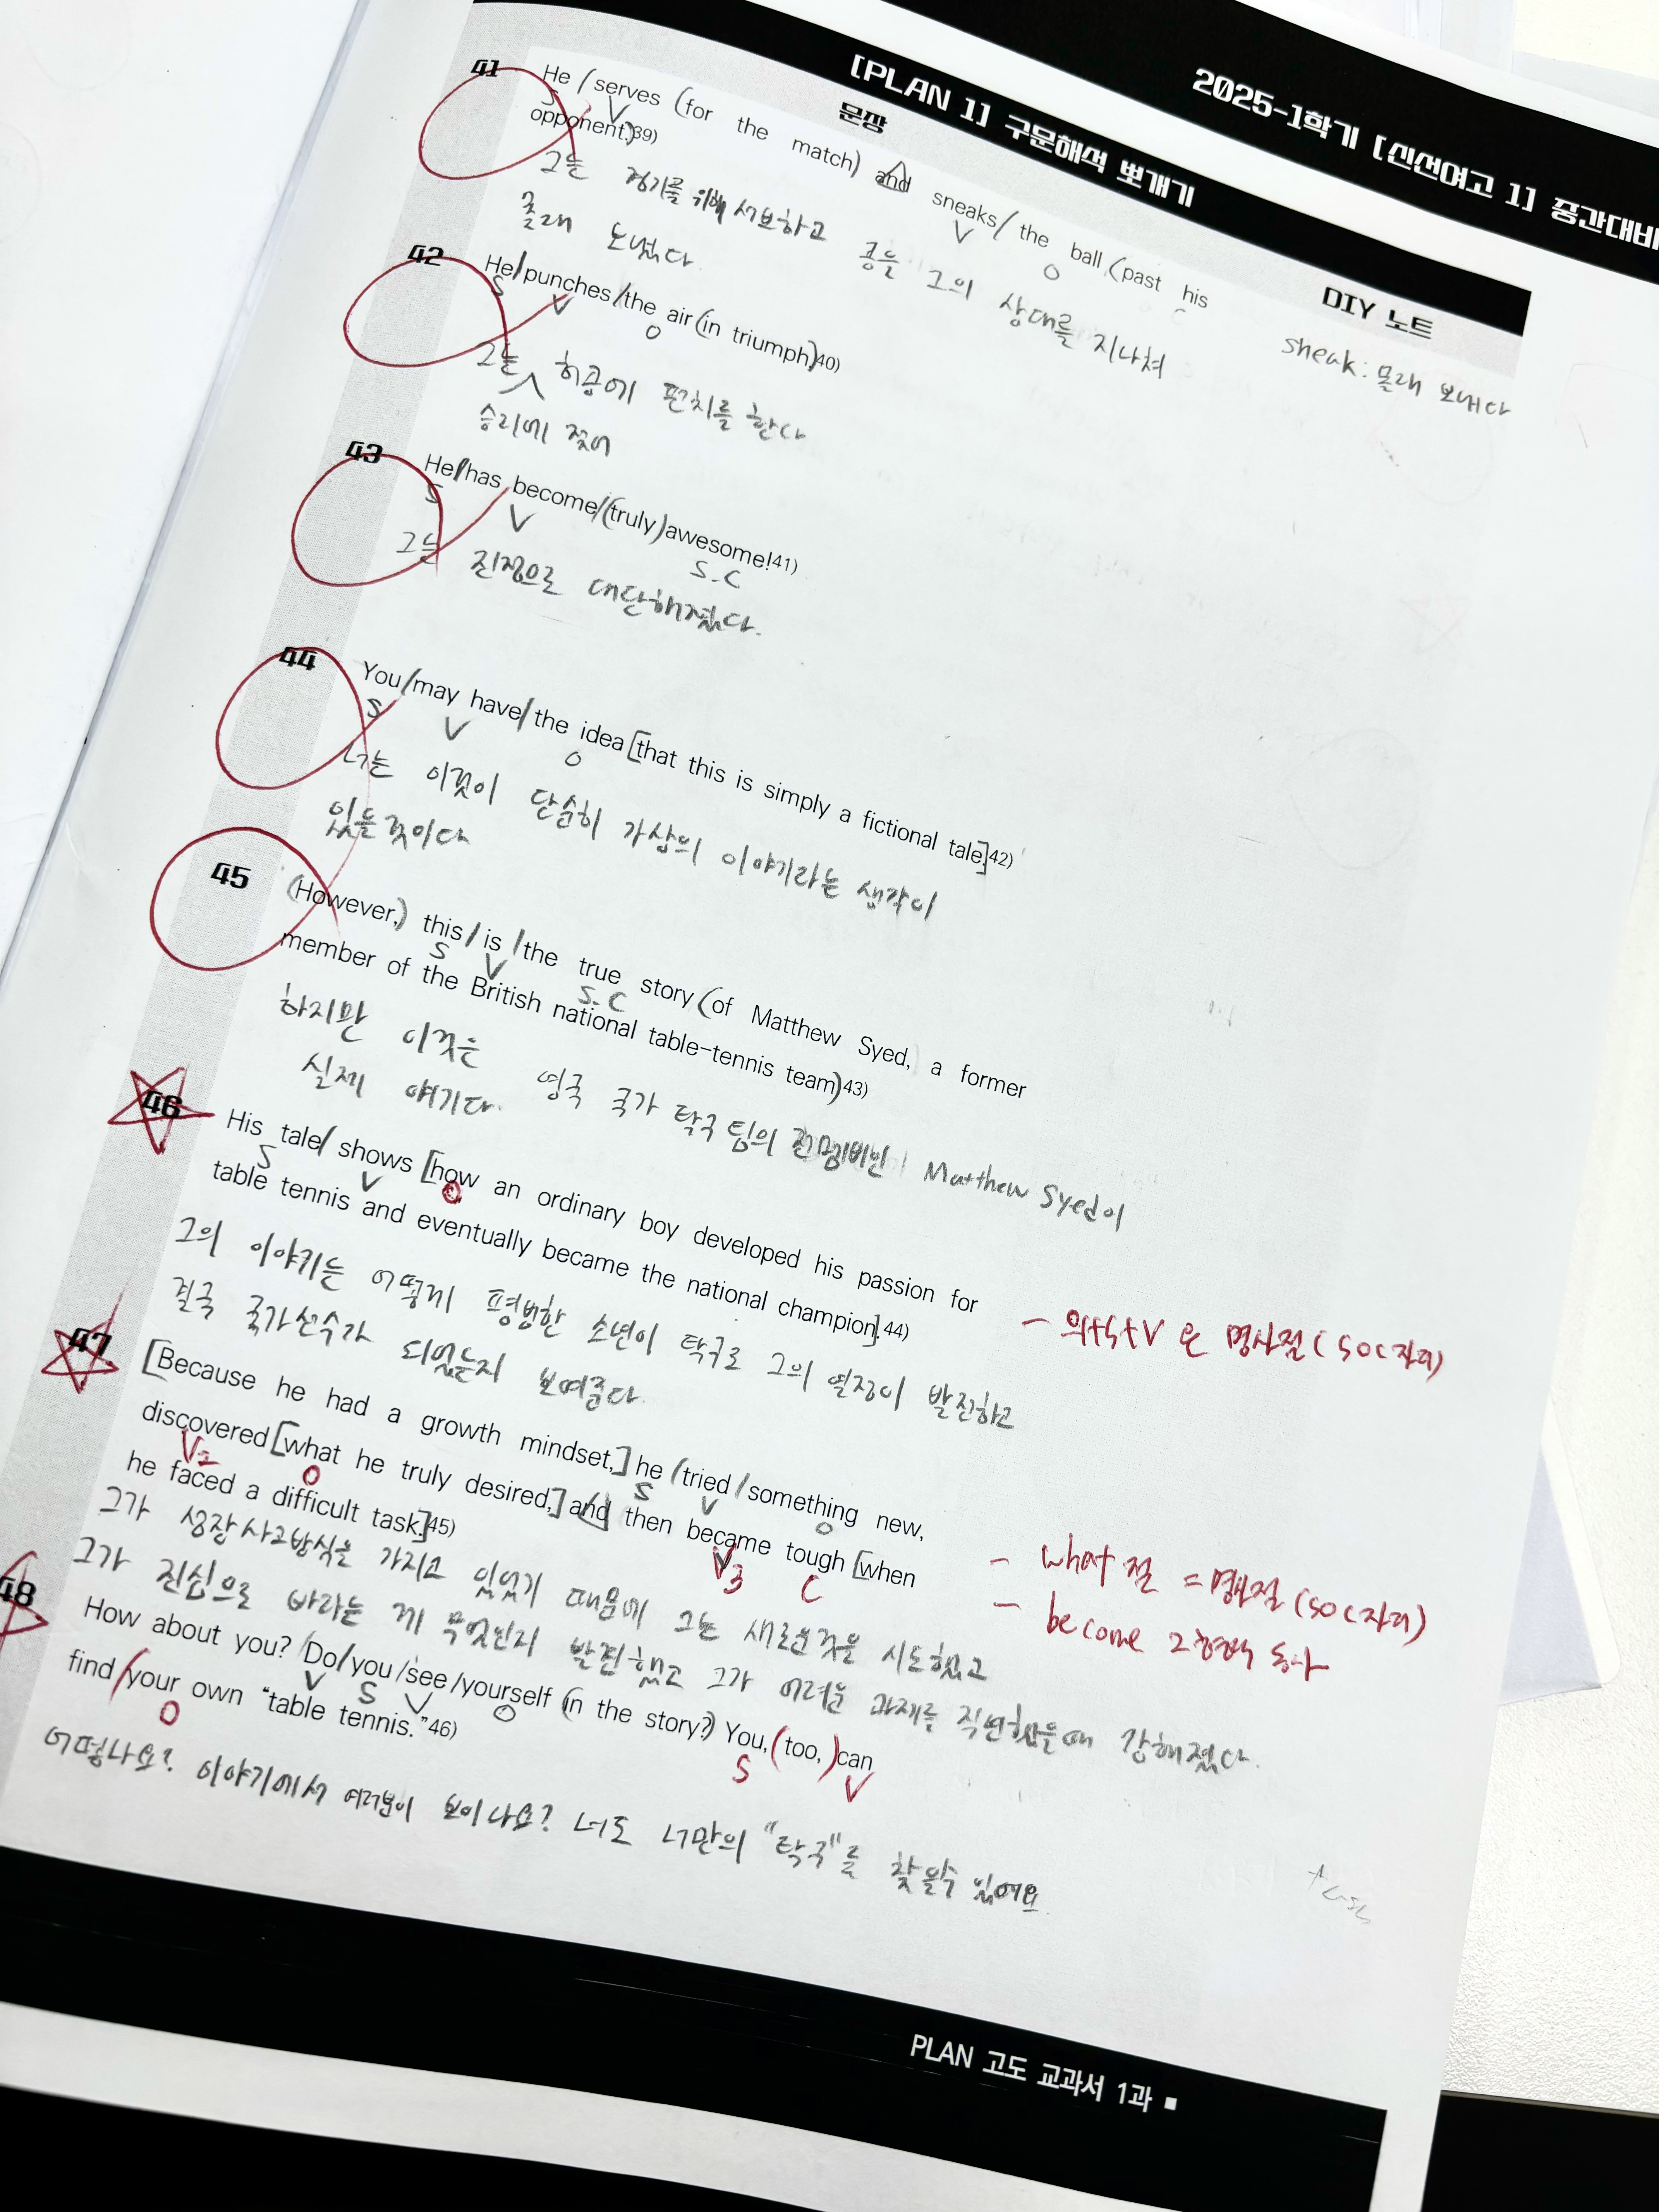 2025-1학기 [신선여고 1] 중간대비
[PLAN 1] 구문해석 뽀개기
문장
DIY 노트
41
He / serves (for the match) and sneaks / the ball (past his
S V V O
opponent.)39)
그는 경기를 위해 서브하고 공을 그의 상대를 지나쳐
몰래 보냈다.
sneak: 몰래 보내다
42
He / punches / the air (in triumph.)40)
S V O
그는 허공에 펀치를 한다
승리에 젖어
43
He / has become / (truly) awesome!41)
S V S.C
그는 진정으로 대단해졌다.
44
You / may have / the idea [that this is simply a fictional tale.]42)
S V O
너는 이것이 단순히 가상의 이야기라는 생각이
있을것이다
45
(However,) this / is / the true story (of Matthew Syed, a former
S V S.C
member of the British national table-tennis team.)43)
하지만 이것은 영국 국가 탁구 팀의 전멤버인 Matthew Syed의
실제 얘기다.
46
His tale / shows [how an ordinary boy developed his passion for
S V O
table tennis and eventually became the national champion.]44)
그의 이야기는 어떻게 평범한 소년이 탁구로 그의 열정이 발전하고
결국 국가선수가 되었는지 보여준다.
- 의+S+V 은 명사절 (SOC자리)
47
[Because he had a growth mindset,] he (tried / something new,
S V O
discovered [what he truly desired,] and then became tough [when
V2 O V3 C
he faced a difficult task.]45)
그가 성장사고방식을 가지고 있었기 때문에 그는 새로운것을 시도했고
그가 진심으로 바라는 게 무엇인지 발전했고 그가 어려운 과제를 직면했을때 강해졌다.
- what 절 = 명사절 (SOC자리)
- become 2형식 동사
48
How about you? Do / you / see / yourself (in the story?) You, (too,) can
V S V O S V
find / your own “table tennis.”46)
O
어떻나요? 이야기에서 여러분이 보이나요? 너도 너만의 "탁구"를 찾을수 있어요.
PLAN 고도 교과서 1과 ■